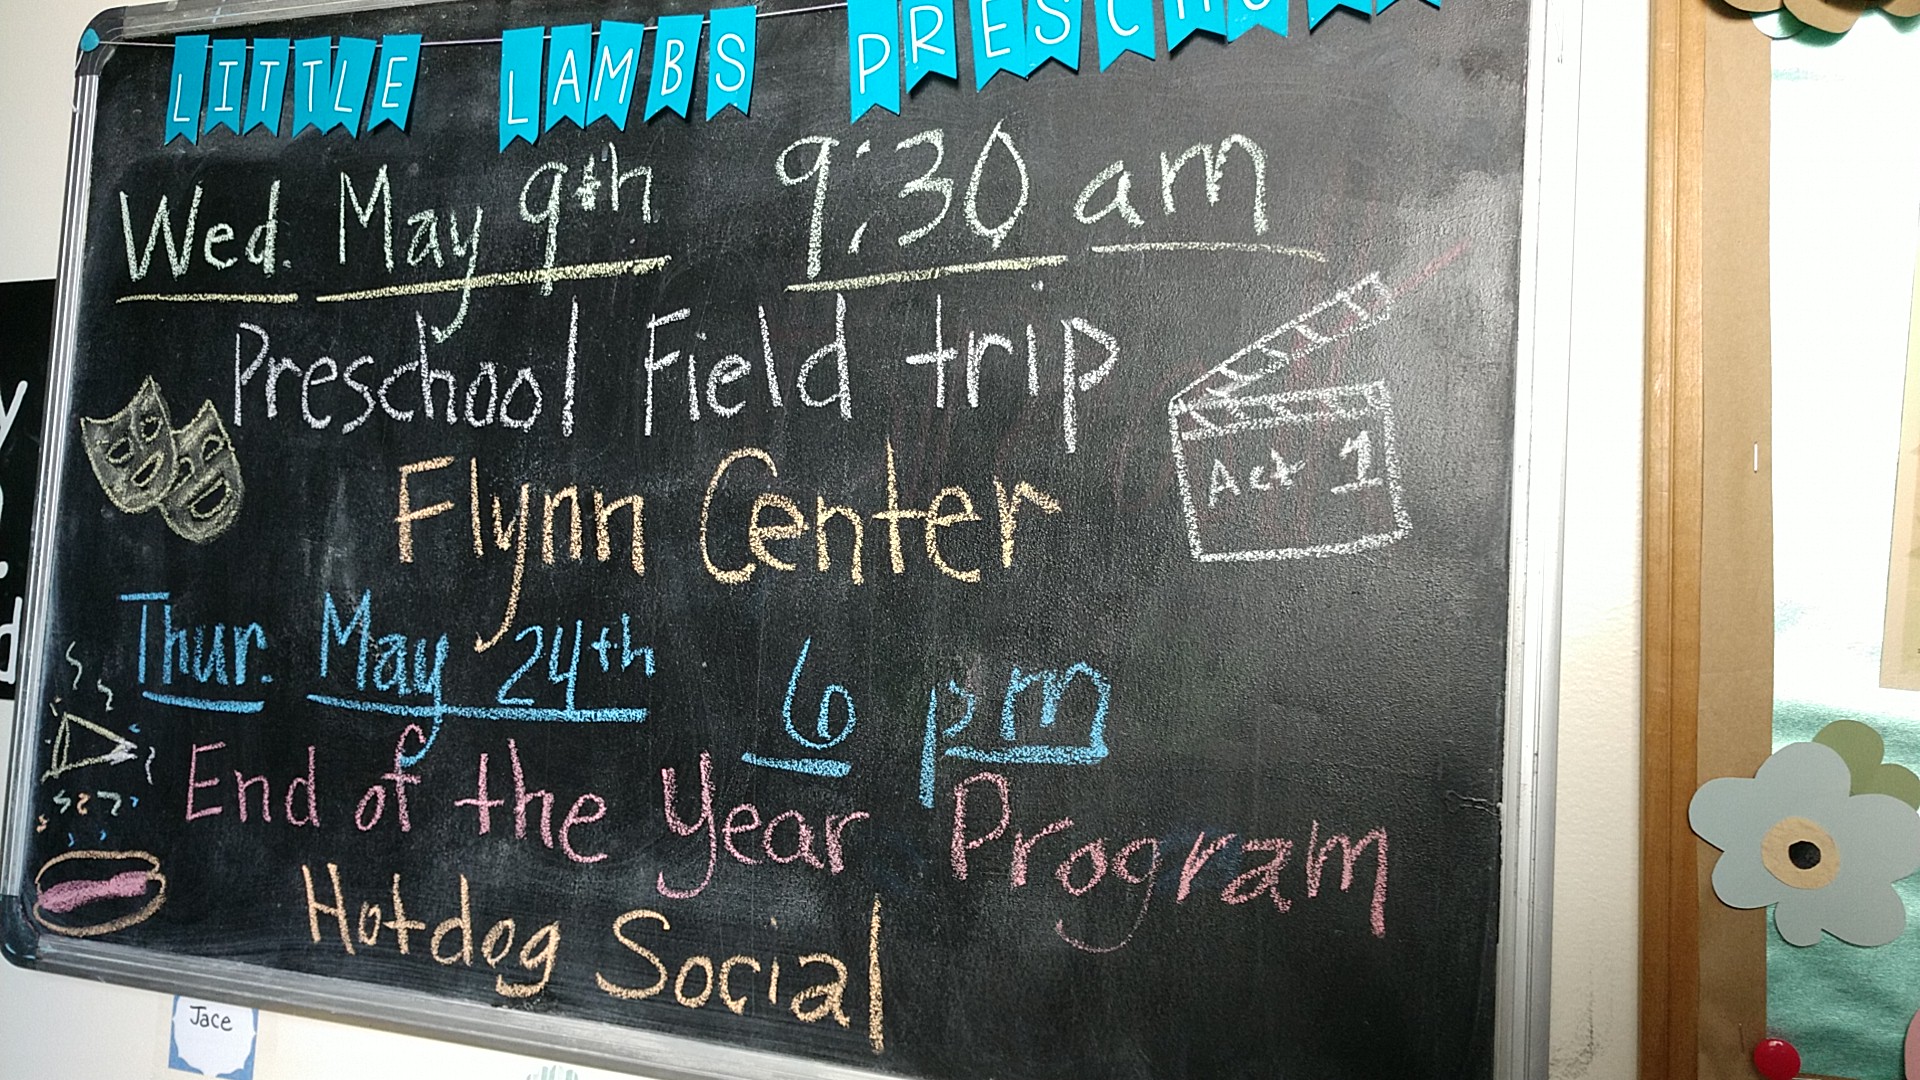 LITTLE LAMBS PRESCHOOL
Wed. May 9th 9:30 am
Preschool Field trip
Flynn Center
Act 1
Thur. May 24th 6 pm
End of the Year Program
Hotdog Social
Jace